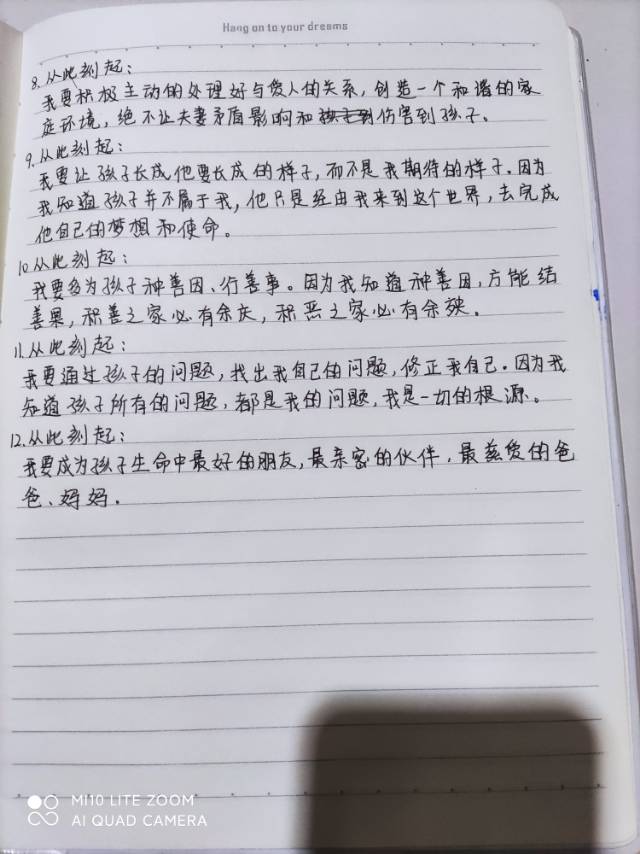 Hang on to your dreams
8.从此刻起：
我要积极主动的处理好与爱人的关系，创造一个和谐的家
庭环境，绝不让夫妻矛盾影响和伤害到孩子。
9.从此刻起：
我要让孩子长成他要长成的样子，而不是我期待的样子。因为
我知道孩子并不属于我，他只是经由我来到这个世界，去完成
他自己的梦想和使命。
10从此刻起：
我要多为孩子种善因、行善事。因为我知道种善因，方能结
善果，积善之家必有余庆，积恶之家必有余殃。
11.从此刻起：
我要通过孩子的问题，找出我自己的问题，修正我自己。因为我
知道孩子所有的问题，都是我的问题，我是一切的根源。
12.从此刻起：
我要成为孩子生命中最好的朋友，最亲密的伙伴，最慈爱的爸
爸、妈妈。
MI10 LITE ZOOM
AI QUAD CAMERA